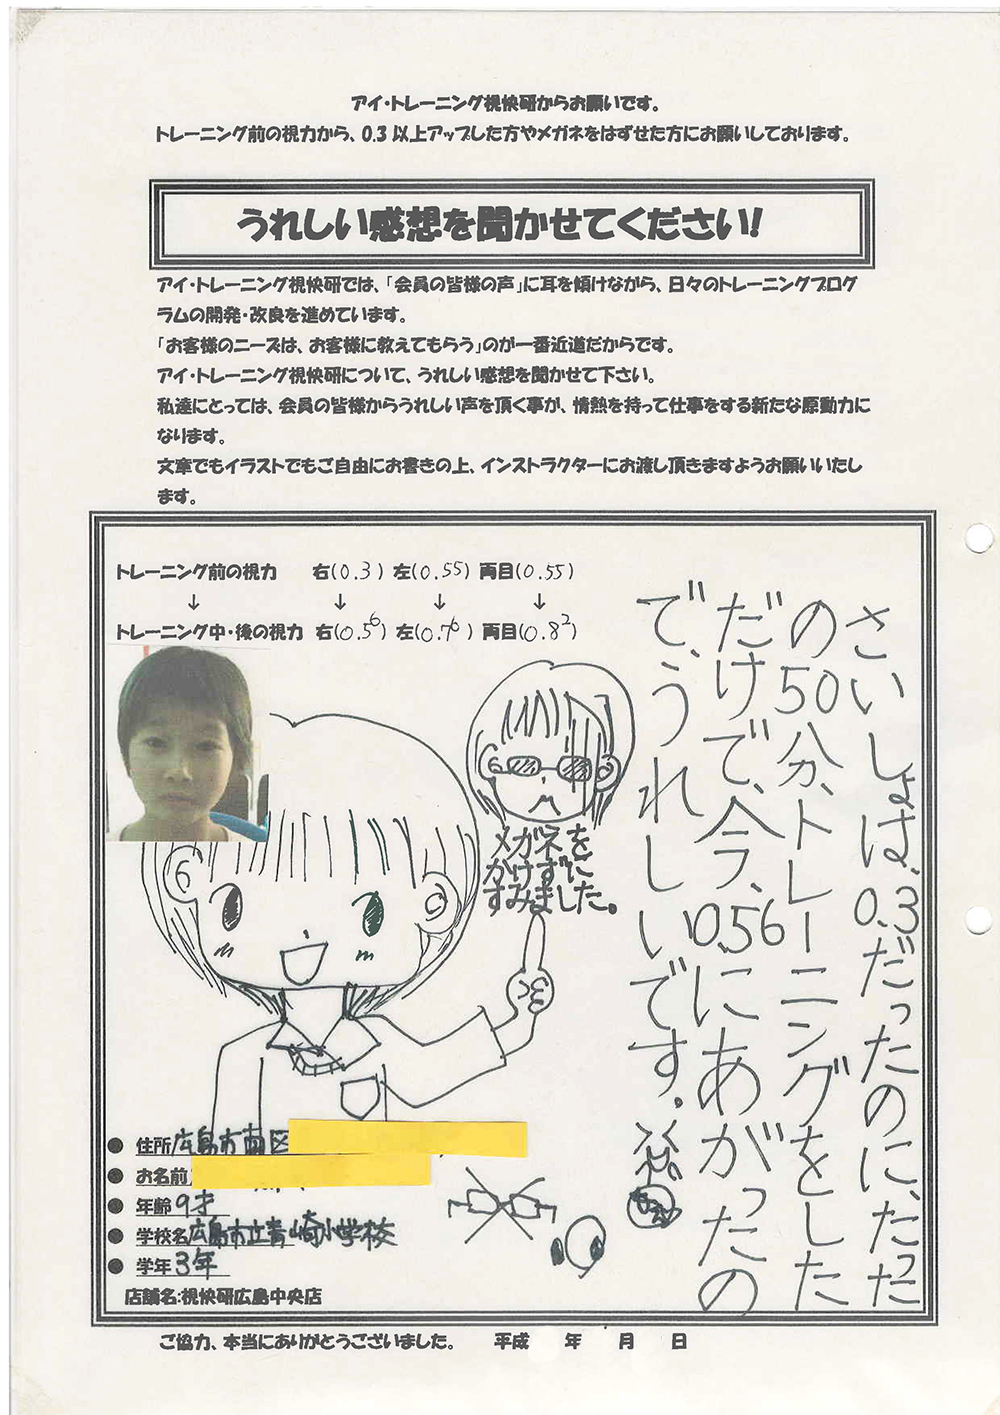 アイ・トレーニング視快研からお願いです。
トレーニング前の視力から、0.3以上アップした方やメガネをはずせた方にお願いしております。
うれしい感想を聞かせてください!
アイ・トレーニング視快研では、「会員の皆様の声」に耳を傾けながら、日々のトレーニングプログ
ラムの開発・改良を進めています。
「お客様のニーズは、お客様に教えてもらう」のが一番近道だからです。
アイ・トレーニング視快研について、うれしい感想を聞かせて下さい。
私達にとっては、会員の皆様からうれしい声を頂く事が、情熱を持って仕事をする新たな原動力に
なります。
文章でもイラストでもご自由にお書きの上、インストラクターにお渡し頂きますようお願いいたし
ます。
トレーニング前の視力 右(0.3) 左(0.55) 両目(0.55)
↓ ↓ ↓ ↓
トレーニング中・後の視力 右(0.56) 左(0.76) 両目(0.82)
さいしょは、0.3だったのに、たった
の50分、トレーニングをした
だけで、今、0.56にあがったの
で、うれしいです。
メガネを
かけずに
すみました。
● 住所 広島市南区
● お名前
● 年齢 9才
● 学校名 広島市立青崎小学校
● 学年 3年
店舗名:視快研広島中央店
ご協力、本当にありがとうございました。 平成 年 月 日